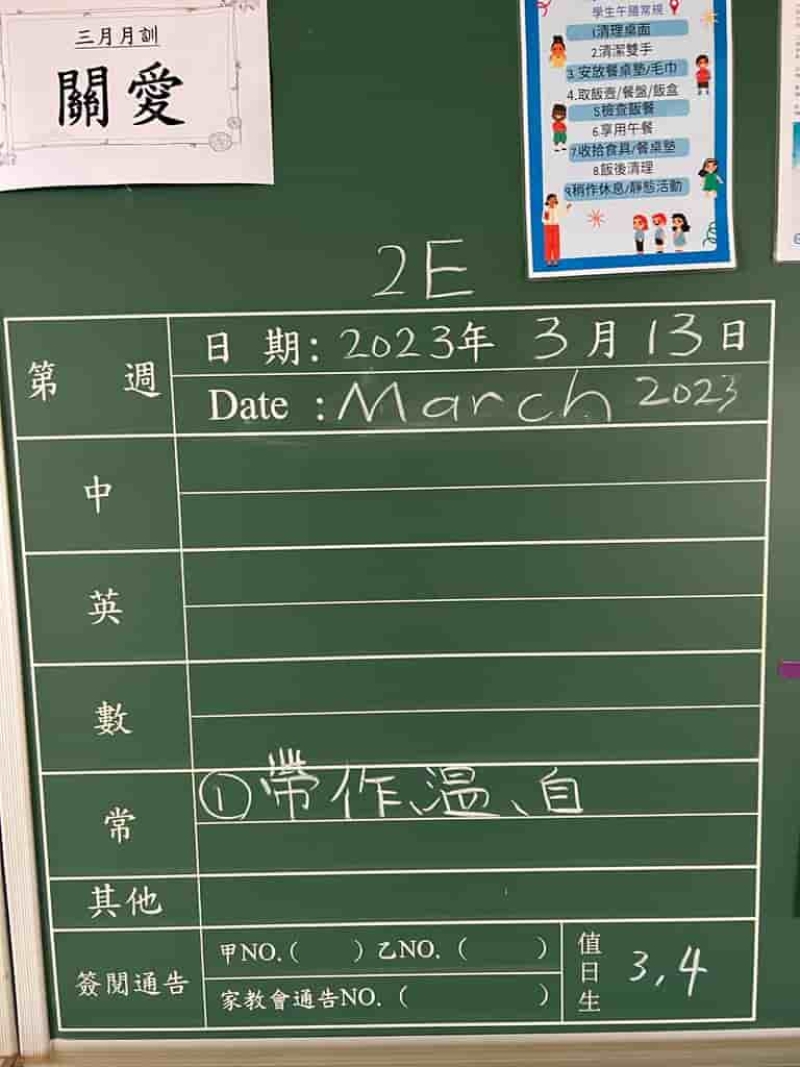 三月月訓
關愛
學生午膳常規
1.清理桌面
2.清潔雙手
3.安放餐桌墊/毛巾
4.取飯壼/餐盤/飯盒
5.檢查飯餐
6.享用午餐
7.收拾食具/餐桌墊
8.飯後清理
9.稍作休息/靜態活動
2E
第 週
日 期：2023年 3月13日
Date :March 2023
中
英
數
常
①帶作、温、自
其他
簽閱通告
甲NO.( )乙NO.( )
家教會通告NO.( )
值日生
3,4